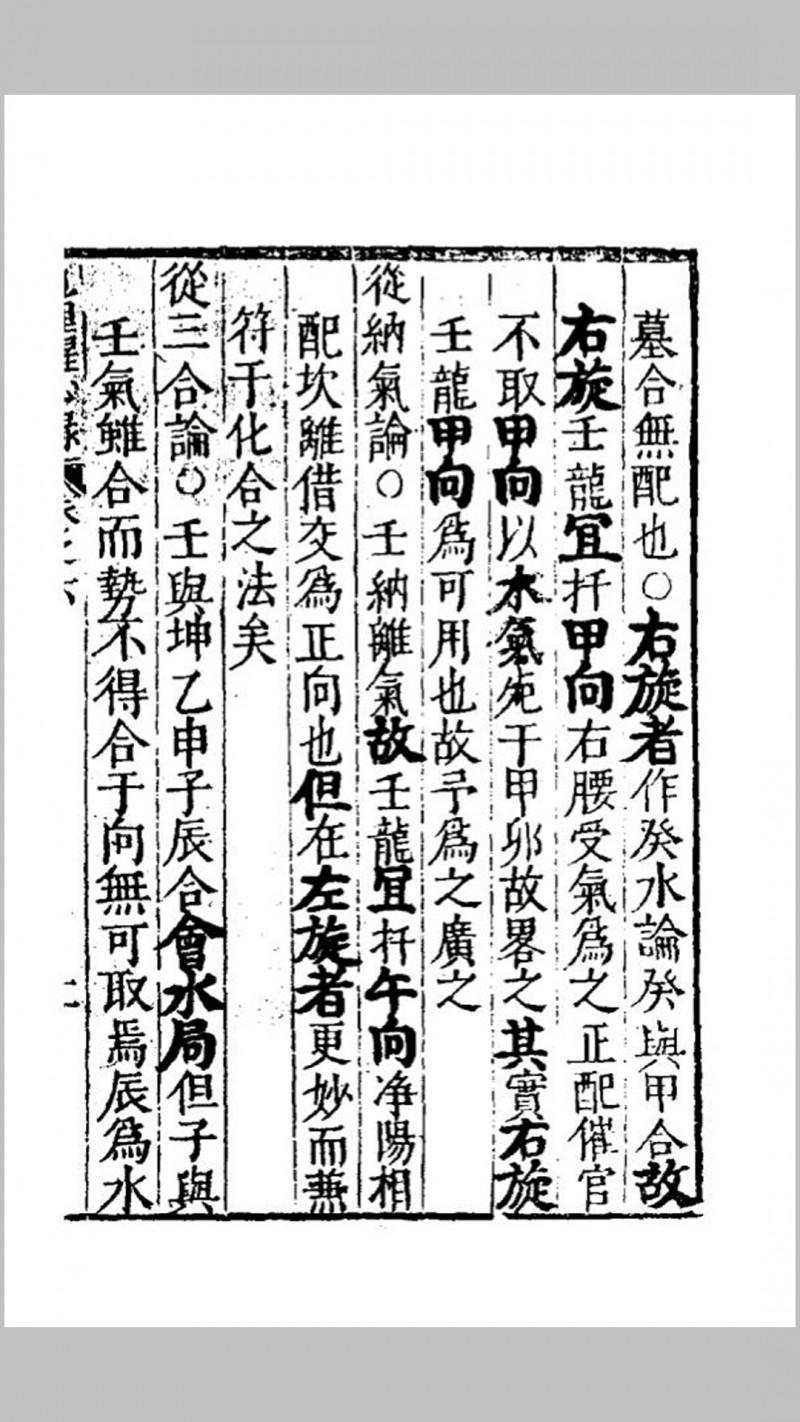 墓合無配也○右旋者作癸水論癸與甲合故
右旋壬龍宜扦甲向右腰受氣爲之正配催官
不取甲向以水氣死于甲卯故畧之其實右旋
壬龍甲向爲可用也故予爲之廣之
從納氣論○壬納離氣故壬龍宜扦午向净陽相
配坎離借交爲正向也但在左旋者更妙而兼
符干化合之法矣
從三合論○壬與坤乙申子辰合會水局但子與
壬氣雖合而勢不得合于向無可取焉辰爲水